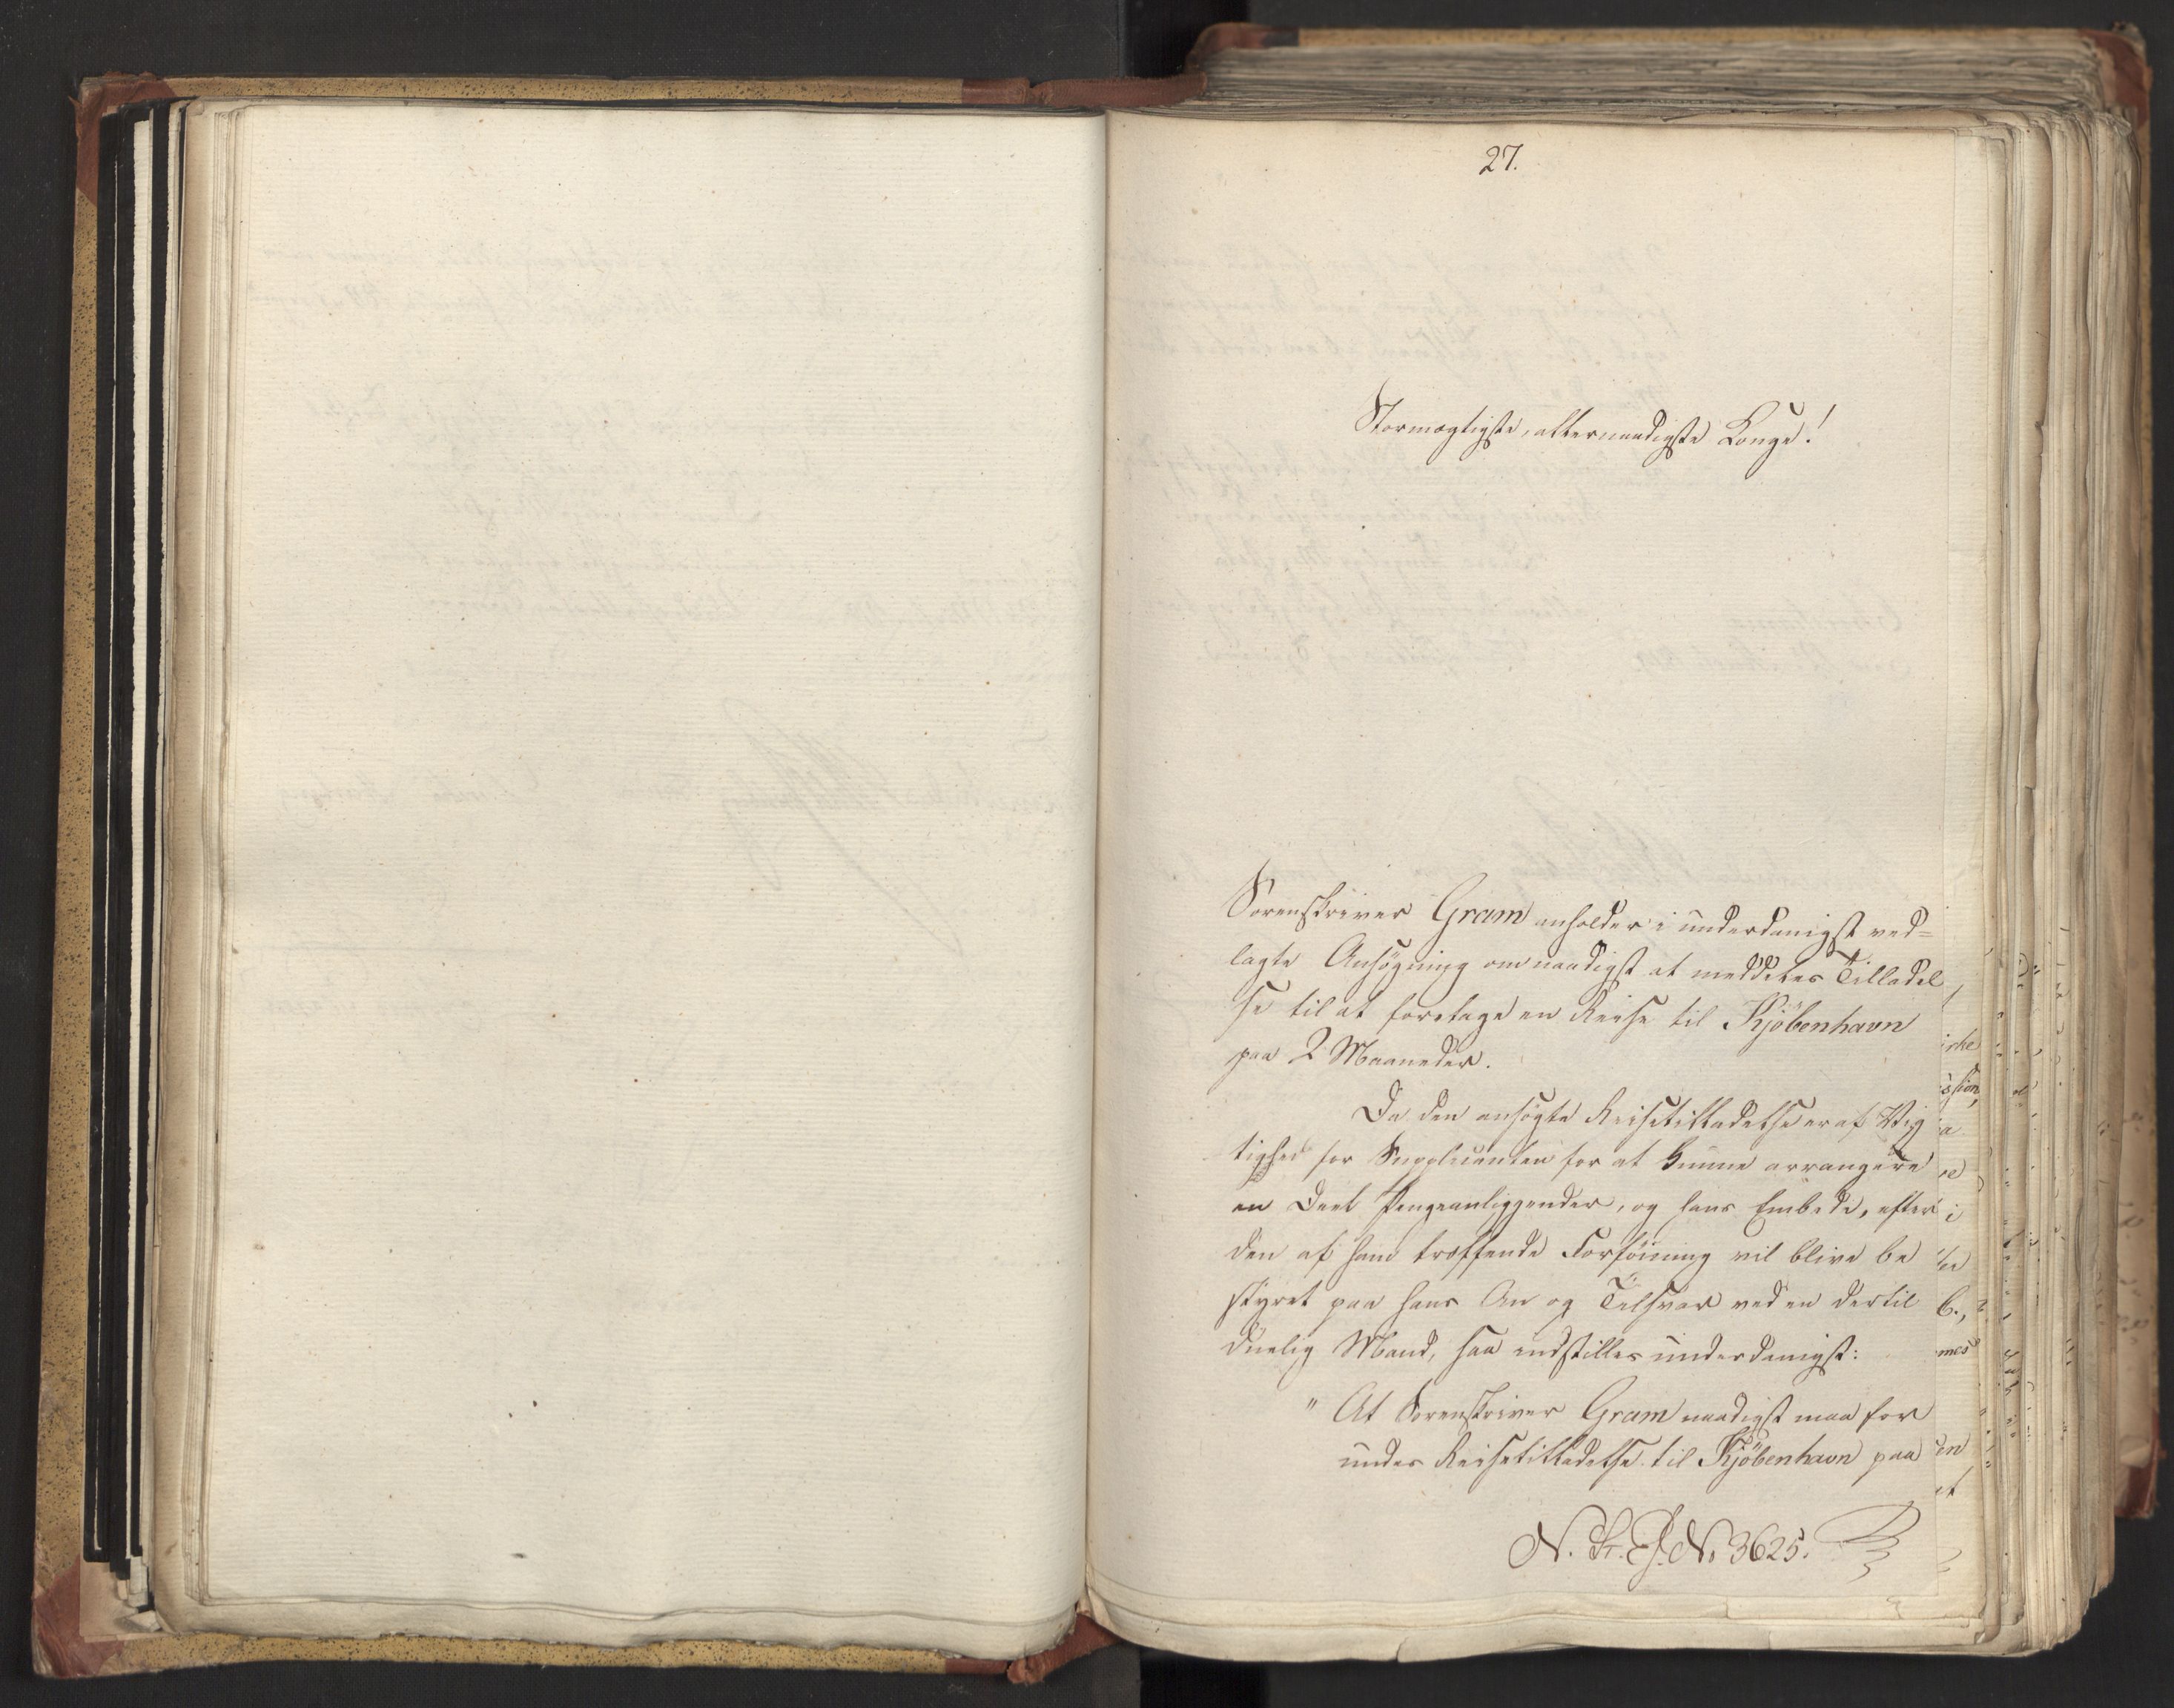 27.
Stormægtigste, allernaadigste Konge!
Sorenskriver Gram anholder i underdanigst ved=
lagte Ansøgning om naadigst at meddeles Tilladel
se til at foretage en Reise til Kjøbenhavn
paa 2 Maaneder.
Da den ansøgte Reisetilladelse er af Vig
tighed for Supplicanten for at kunne arrangere
en Deel Pengeanliggender, og hans Embede, efter
den af ham træffende Forføining vil blive be
styret paa hans An og Tilsvar ved en dertil
duelig Mand, saa indstilles underdanigst:
" At Sorenskriver Gram naadigst maa for
undes Reisetilladelse til Kjøbenhavn paa
N. Sk. J. No 3625.